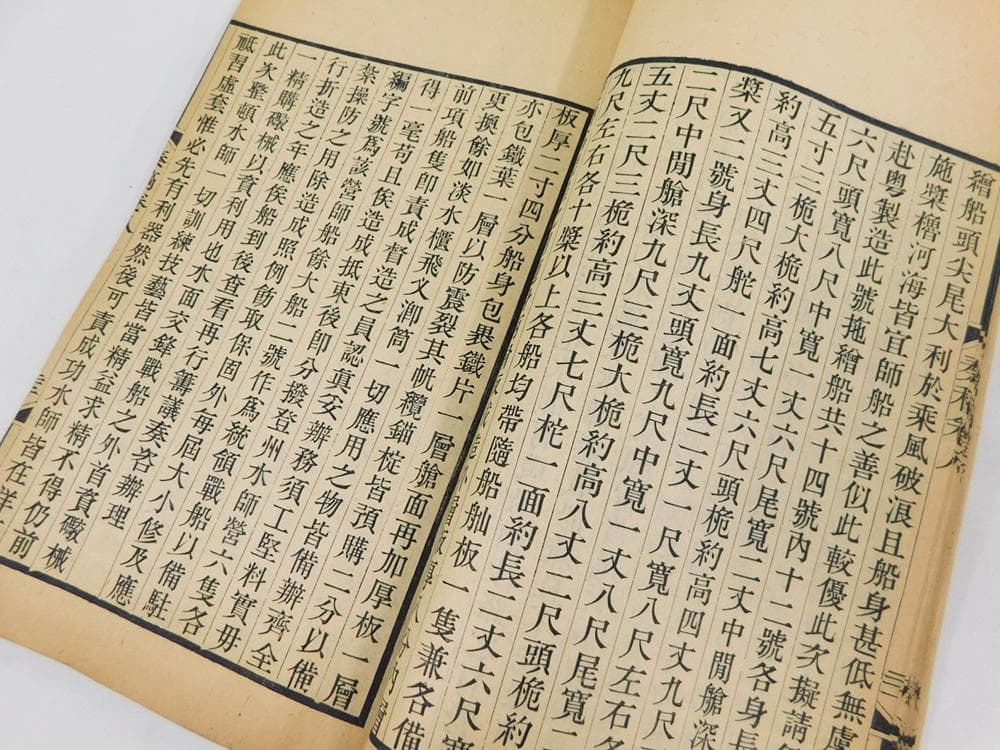 繒船頭尖尾大利於乘風破浪且船身甚低無虛
施槳櫓河海皆宜師船之善似此較優此次擬請
赴粵製造此號拖繒船共十四號內十二號各身長
六尺頭寬八尺中寬一丈六尺尾寬二丈中間艙深
五寸三桅大桅約高七丈六尺頭桅約高四丈九尺
約高三丈四尺舵一面約長二丈一尺寬八尺左右各
槳又二號身長九丈頭寬九尺中寬一丈八尺尾寬二
二尺中間艙深九尺三桅大桅約高八丈二尺頭桅約
五丈二尺三桅約高三丈七尺柁一面約長二丈六尺寬
九尺左右各十槳以上各船均帶隨船舢板一隻兼各備
板厚二寸四分船身包裹鐵片一層艙面再加厚板一層
亦包鐵葉一層以防震裂其帆纜錨椗皆預購二分以備
更換餘如淡水櫃飛叉筒一切應用之物皆備辦齊全
前項船隻卽責成督造之員認眞妥辦務須工堅料實毋
得一毫苟且俟造成抵東後卽分撥登州水師營六隻各
編字號爲該營師船餘大船二號作爲統領戰船以備駐
紮操防之用除造成照例飭取保固外每屆大小修及應
行折造之年應俟船到後查看再行籌議奏咨辦理
一精購礮械以資利用也水面交鋒戰船之外首資礮械
此次整頓水師一切訓練技藝皆當精益求精不得仍前
祗習虛套惟必先有利器然後可責成功水師皆在洋